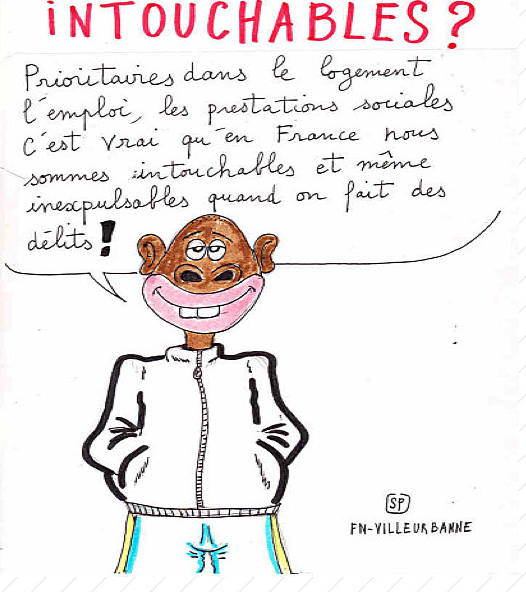 iNTOUCHABLES?
Prioritaires dans le logement
l'emploi, les prestations sociales
C'est vrai qu'en France nous
sommes intouchables et même
inexpulsables quand on fait des
délits!
SP
FN-VILLEURBANNE